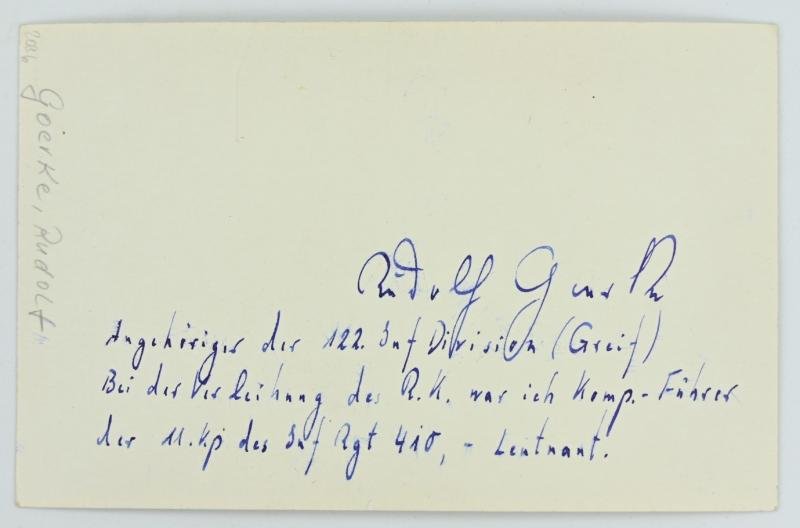 Goerke, Rudolf
Rudolf Goerke
Angehöriger der 122. Inf Division (Greif)
Bei der Verleihung des R.K. war ich Komp.-Führer
der 11. Kp des Inf Rgt 410, - Leutnant.